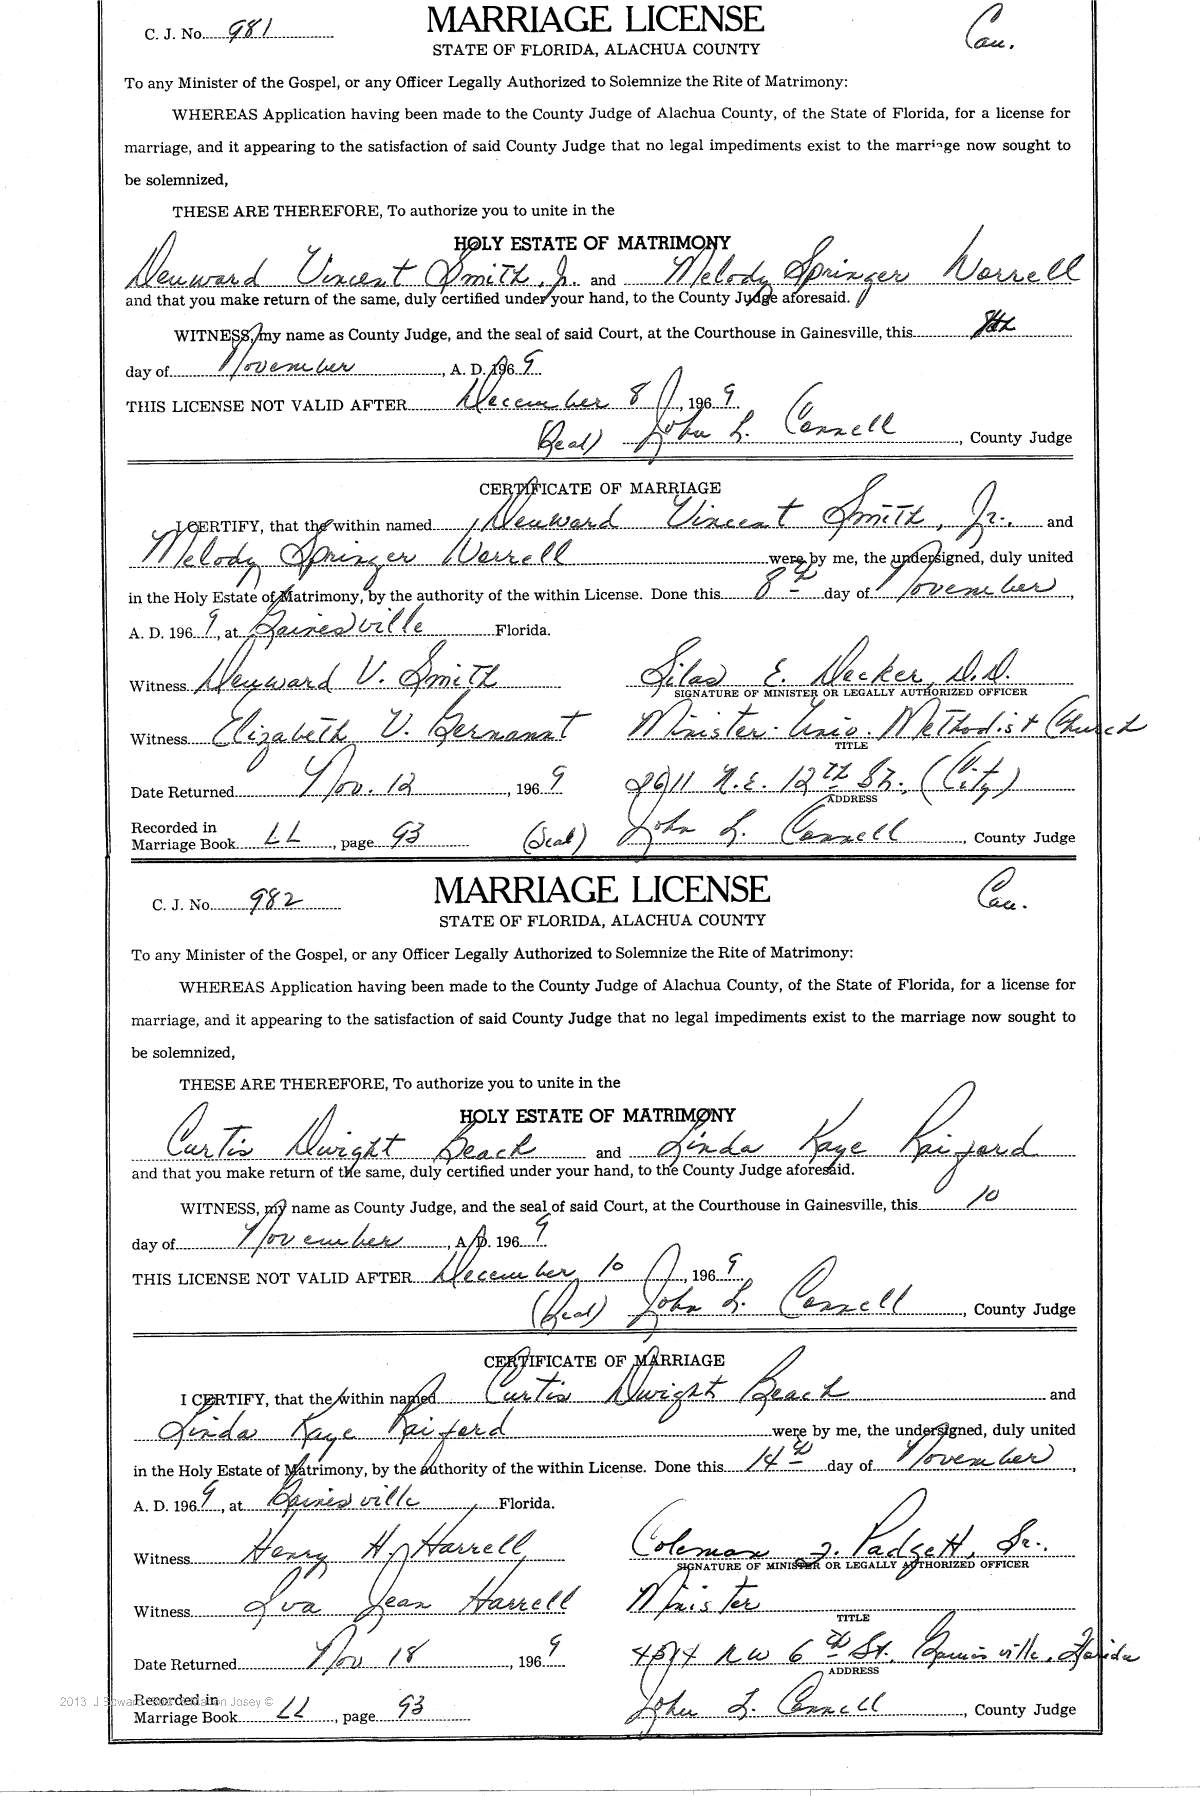 C. J. No. 981
MARRIAGE LICENSE
Cau.
STATE OF FLORIDA, ALACHUA COUNTY
To any Minister of the Gospel, or any Officer Legally Authorized to Solemnize the Rite of Matrimony:
WHEREAS Application having been made to the County Judge of Alachua County, of the State of Florida, for a license for
marriage, and it appearing to the satisfaction of said County Judge that no legal impediments exist to the marriage now sought to
be solemnized,
THESE ARE THEREFORE, To authorize you to unite in the
HOLY ESTATE OF MATRIMONY
Denward Vincent Smith, Jr. and Melody Springer Worrell
and that you make return of the same, duly certified under your hand, to the County Judge aforesaid.
WITNESS, my name as County Judge, and the seal of said Court, at the Courthouse in Gainesville, this 8th
day of November, A. D. 1969
THIS LICENSE NOT VALID AFTER December 8, 1969
(Seal) John L. Connell, County Judge
CERTIFICATE OF MARRIAGE
I CERTIFY, that the within named Denward Vincent Smith, Jr. and
Melody Springer Worrell were by me, the undersigned, duly united
in the Holy Estate of Matrimony, by the authority of the within License. Done this 8th day of November,
A. D. 1969, at Gainesville Florida.
Witness Denward V. Smith Silas E. Decker, D.D.
SIGNATURE OF MINISTER OR LEGALLY AUTHORIZED OFFICER
Witness Elizabeth V. Germannt Minister-Univ. Methodist Church
TITLE
Date Returned Nov. 12, 1969 2611 N.E. 12th St., (City)
ADDRESS
Recorded in
Marriage Book LL, page 93 (Seal) John L. Connell, County Judge
C. J. No. 982
MARRIAGE LICENSE
Cau.
STATE OF FLORIDA, ALACHUA COUNTY
To any Minister of the Gospel, or any Officer Legally Authorized to Solemnize the Rite of Matrimony:
WHEREAS Application having been made to the County Judge of Alachua County, of the State of Florida, for a license for
marriage, and it appearing to the satisfaction of said County Judge that no legal impediments exist to the marriage now sought to
be solemnized,
THESE ARE THEREFORE, To authorize you to unite in the
HOLY ESTATE OF MATRIMONY
Curtis Dwight Beach and Linda Kaye Raiford
and that you make return of the same, duly certified under your hand, to the County Judge aforesaid.
WITNESS, my name as County Judge, and the seal of said Court, at the Courthouse in Gainesville, this 10
day of November, A. D. 1969
THIS LICENSE NOT VALID AFTER December 10, 1969
(Seal) John L. Connell, County Judge
CERTIFICATE OF MARRIAGE
I CERTIFY, that the within named Curtis Dwight Beach and
Linda Kaye Raiford were by me, the undersigned, duly united
in the Holy Estate of Matrimony, by the authority of the within License. Done this 14th day of November,
A. D. 1969, at Gainesville, Florida.
Witness Henry H. Harrell Coleman J. Padgett, Sr.
SIGNATURE OF MINISTER OR LEGALLY AUTHORIZED OFFICER
Witness Iva Jean Harrell Minister
TITLE
Date Returned Nov 18, 1969 NW 6th St. Gainesville, Florida
ADDRESS
Recorded in
Marriage Book LL, page 93 John L. Connell, County Judge
2013 J Edward Josey ©